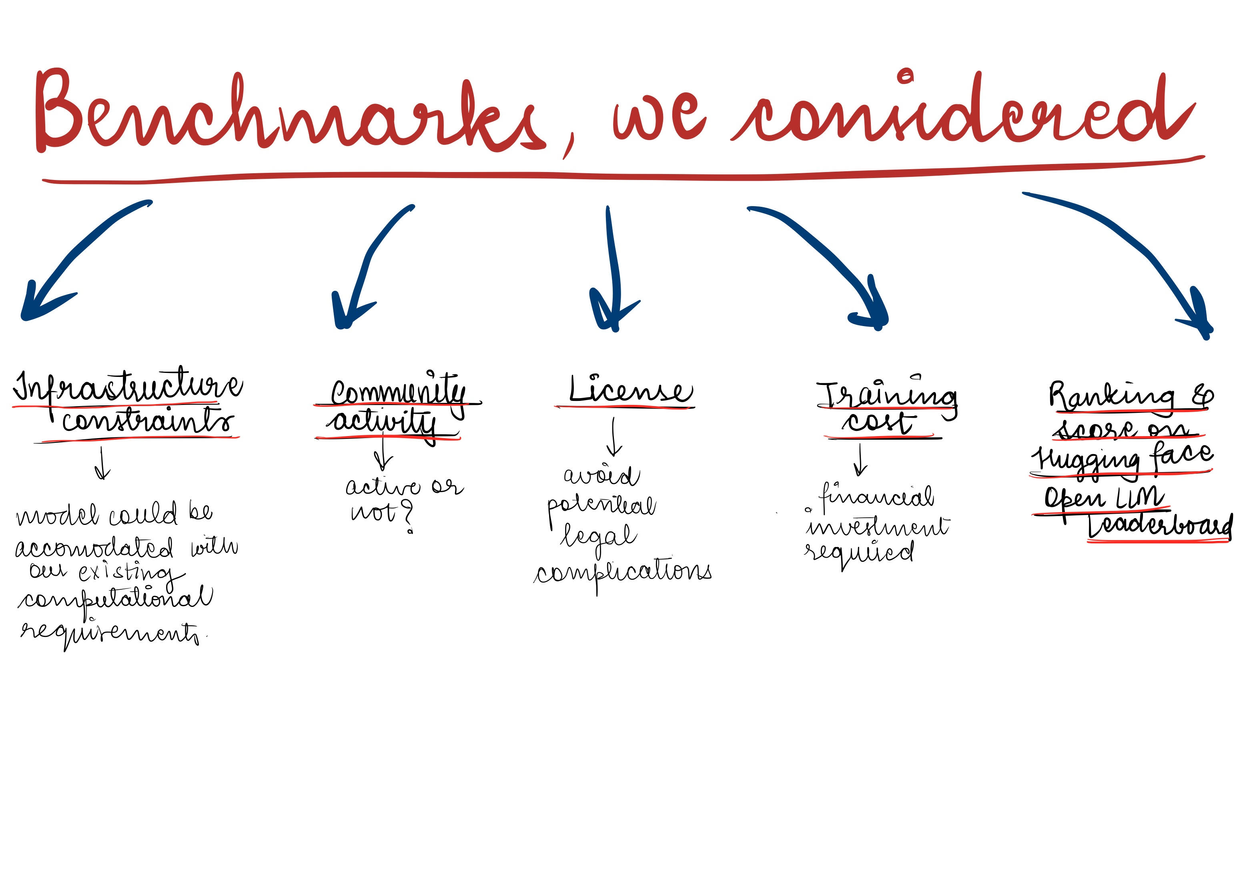 Benchmarks, we considered
Infrastructure
constraints
model could be
accomodated with
our existing
computational
requirements.
Community
activity
active or
not?
License
avoid
potential
legal
complications
Training
cost
financial
investment
required
Ranking &
score on
Hugging face
Open LLM
Leaderboard